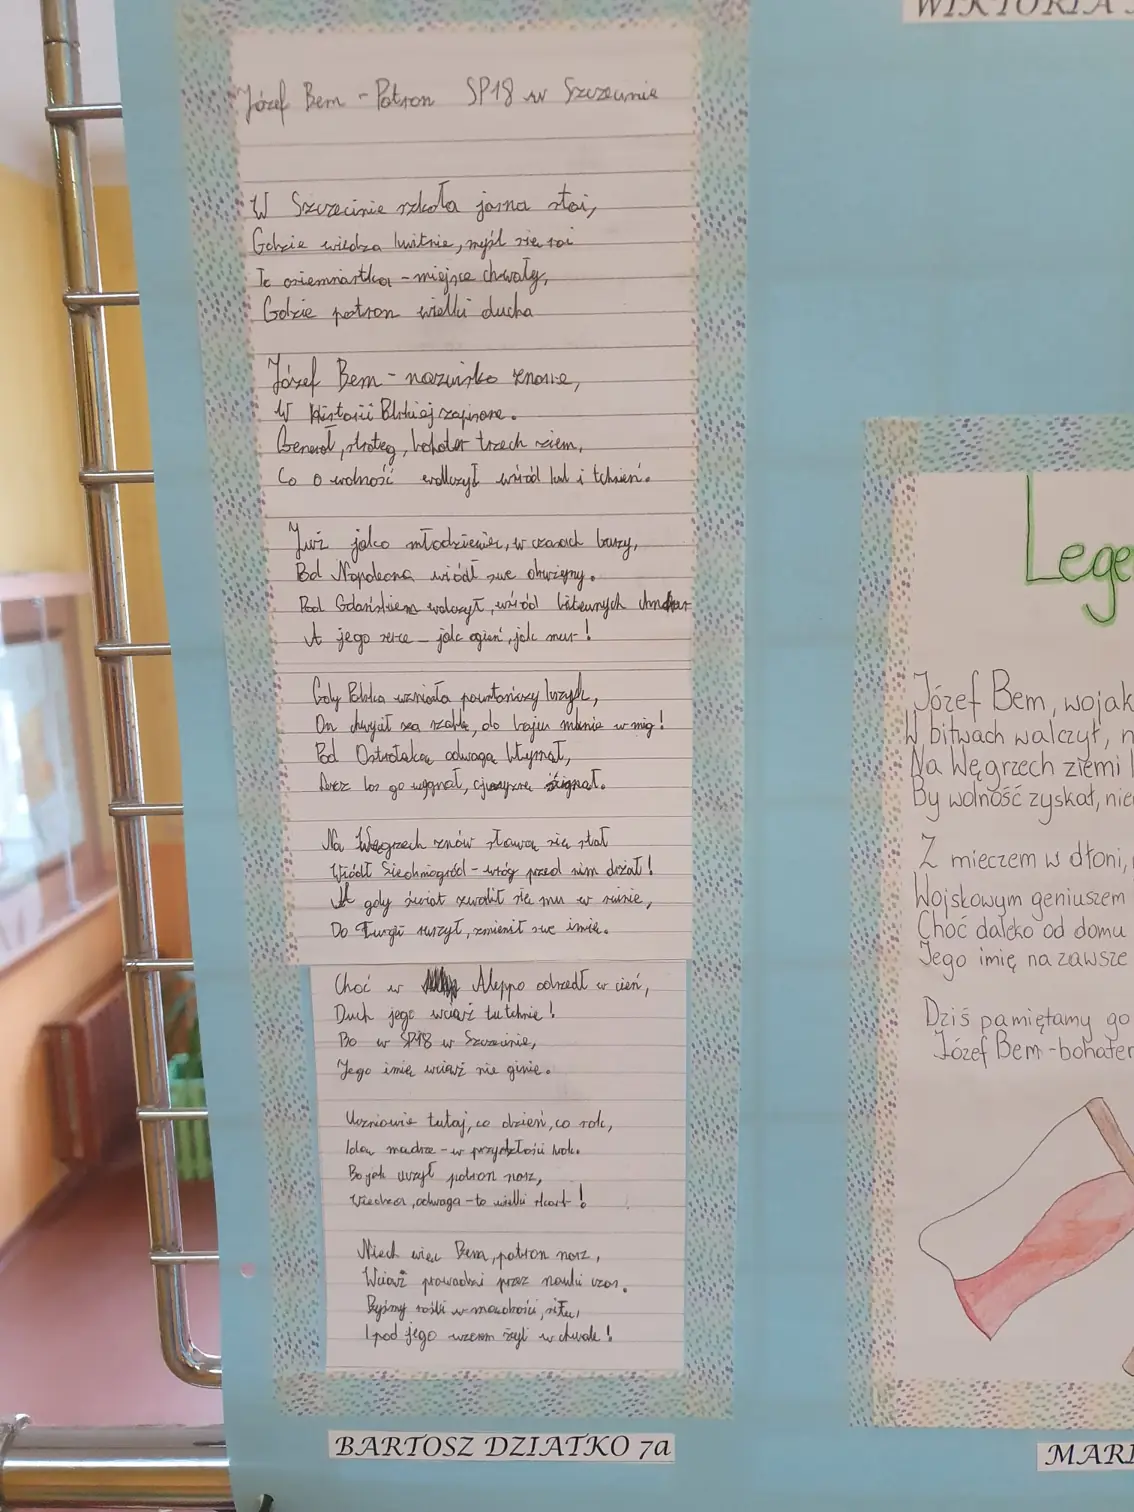 WIKTORIA
Józef Bem - Patron SP18 w Szczecinie
W Szczecinie szkoła jasna stoi,
Gdzie wiedza kwitnie, myśl się roi
To osiemnastka - miejsce chwały,
Gdzie patron wielki ducha
Józef Bem - nazwisko znane,
W Historii Polskiej zapisane.
Generał, strateg, bohater trzech ziem,
Co o wolność walczył wśród kul i tchnień.
Już jako młodzieniec, w czasach burzy,
Pod Napoleona wiódł swe
Pod Gdańskiem walczył, wśród bitewnych chmur
A jego serce - jak ogień, jak mur!
Gdy Polska wzniosła powstańczy krzyk,
On chwycił za szablę, do boju w mig!
Pod Ostrołęką odwagą błysnął,
Lecz los go wygnał, ojczyznę
Na Węgrzech znów sławą się stał
Wiódł Siedmiogród - wróg przed nim drżał!
A gdy świat zwalił się mu w ruinie,
Do Turcji ruszył, zmienił swe imię.
Choć w Aleppo odszedł w cień,
Duch jego wciąż tu tchnie!
Bo w SP18 w Szczecinie,
Jego imię wciąż nie ginie.
Uczniowie tutaj, co dzień, co rok,
Idą mądrze - w przyszłości krok.
Bo jak uczył patron nasz,
Wiedza, odwaga - to wielki skarb!
Niech więc Bem, patron nasz,
Wciąż prowadzi przez nauki czas.
Byśmy rośli w mądrości, siłę,
I pod jego wzorem żyli w chwale!
BARTOSZ DZIATKO 7a
Lege
Józef Bem, wojak
W bitwach walczył, n
Na Węgrzech ziemi
By wolność zyskał, nie
Z mieczem w dłoni,
Wojskowym geniuszem
Choć daleko od domu
Jego imię na zawsze
Dziś pamiętamy go
Józef Bem - bohater
MARI